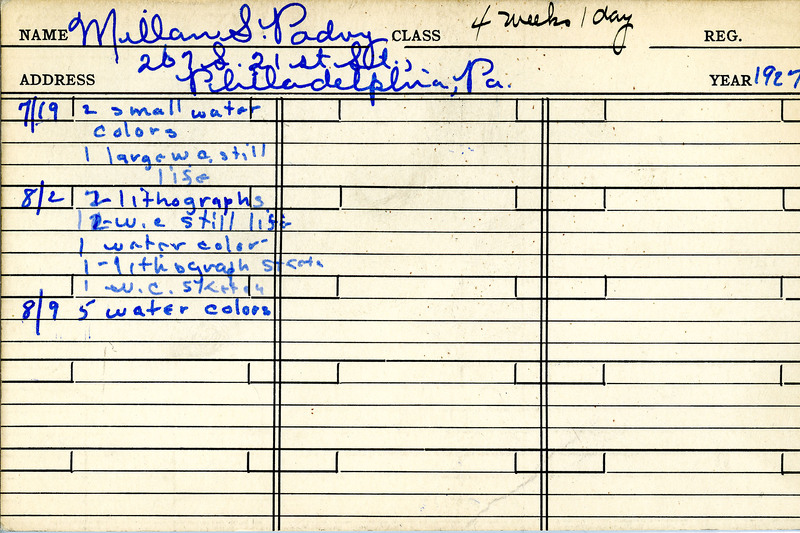 NAME Millan S. Padvy CLASS 4 weeks 1 day REG.
267 S. 21st. St.,
ADDRESS Philadelphia, Pa. YEAR 1927
7/19 2 small water
colors
1 large w.c. still
life
8/2 2-lithographs
2-w.c still life
1 water color
1-lithograph sketch
1 w.c. sketch
8/9 5 water colors